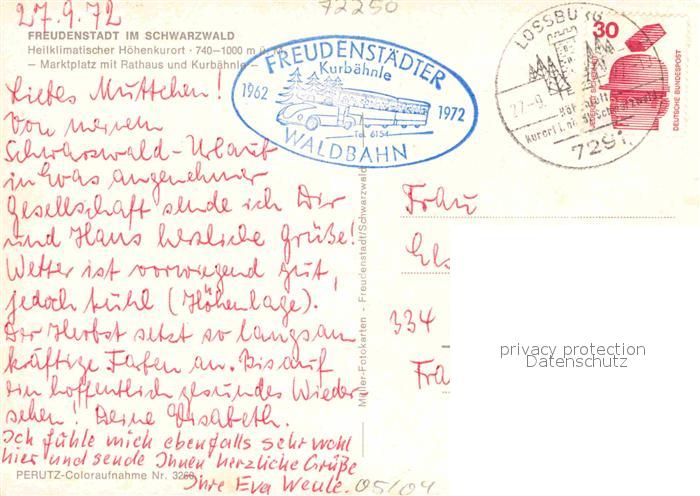 27.9.72
72250
FREUDENSTADT IM SCHWARZWALD
Heilklimatischer Höhenkurort · 740–1000 m ü.
– Marktplatz mit Rathaus und Kurbähnle –
FREUDENSTÄDTER
Kurbähnle
1962 1972
Tel. 6154
WALDBAHN
LOSSBURG
27.-9.
7291
30
DEUTSCHE BUNDESPOST
Liebes Muttchen!
Von meinem
Schwarzwald-Urlaub
in Evas angenehmer
Gesellschaft sende ich Dir
und Hans herzliche Grüße!
Wetter ist vorwiegend gut,
jedoch kühl (Höhenlage).
Der Herbst setzt so langsam
kräftige Farben an. Bis auf
ein hoffentlich gesundes Wieder-
sehen! Deine Elisabeth.
Ich fühle mich ebenfalls sehr wohl
hier und sende Ihnen herzliche Grüße
Ihre Eva
PERUTZ-Coloraufnahme Nr. 3260
05/04
Müller-Fotokarten - Freudenstadt/Schwarzwald
Frau
334
privacy protection
Datenschutz